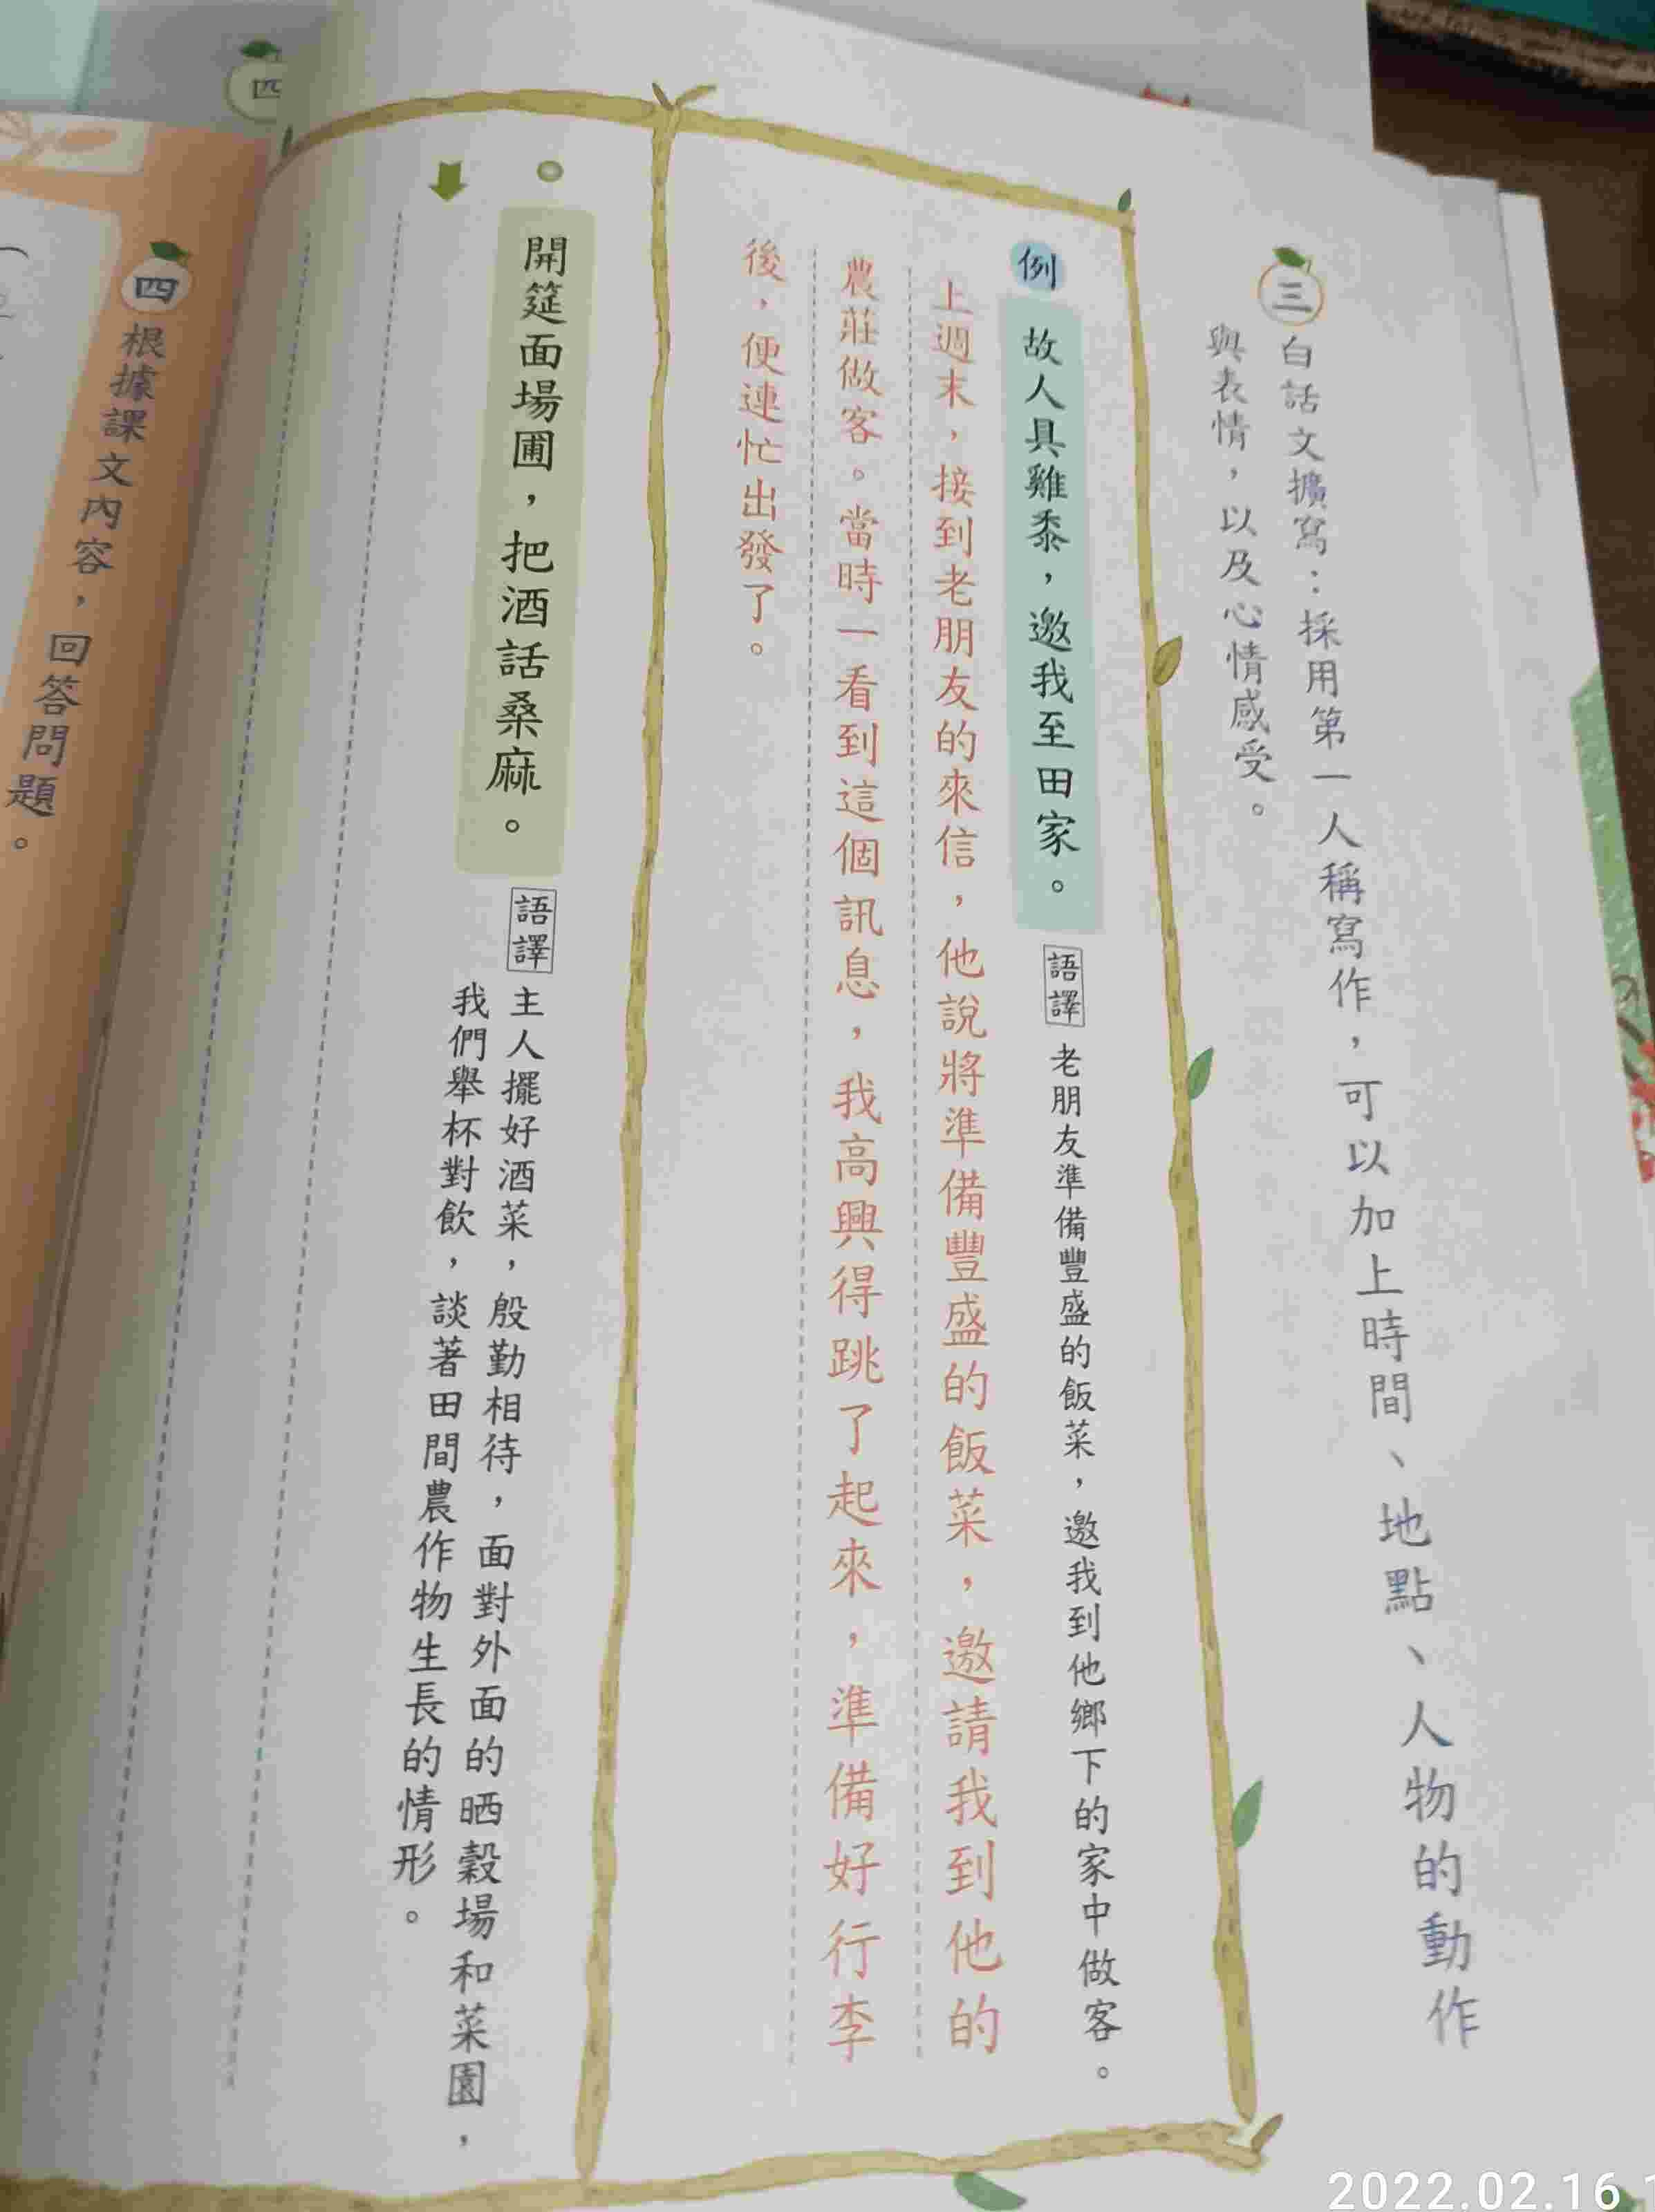 三 白話文擴寫：採用第一人稱寫作，可以加上時間、地點、人物的動作
與表情，以及心情感受。
例 故人具雞黍，邀我至田家。
語譯 老朋友準備豐盛的飯菜，邀我到他鄉下的家中做客。
上週末，接到老朋友的來信，他說將準備豐盛的飯菜，邀請我到他的
農莊做客。當時一看到這個訊息，我高興得跳了起來，準備好行李
後，便連忙出發了。
開筵面場圃，把酒話桑麻。
語譯 主人擺好酒菜，殷勤相待，面對外面的晒穀場和菜園，
我們舉杯對飲，談著田間農作物生長的情形。
四
四 根據課文內容，回答問題。
2022.02.16